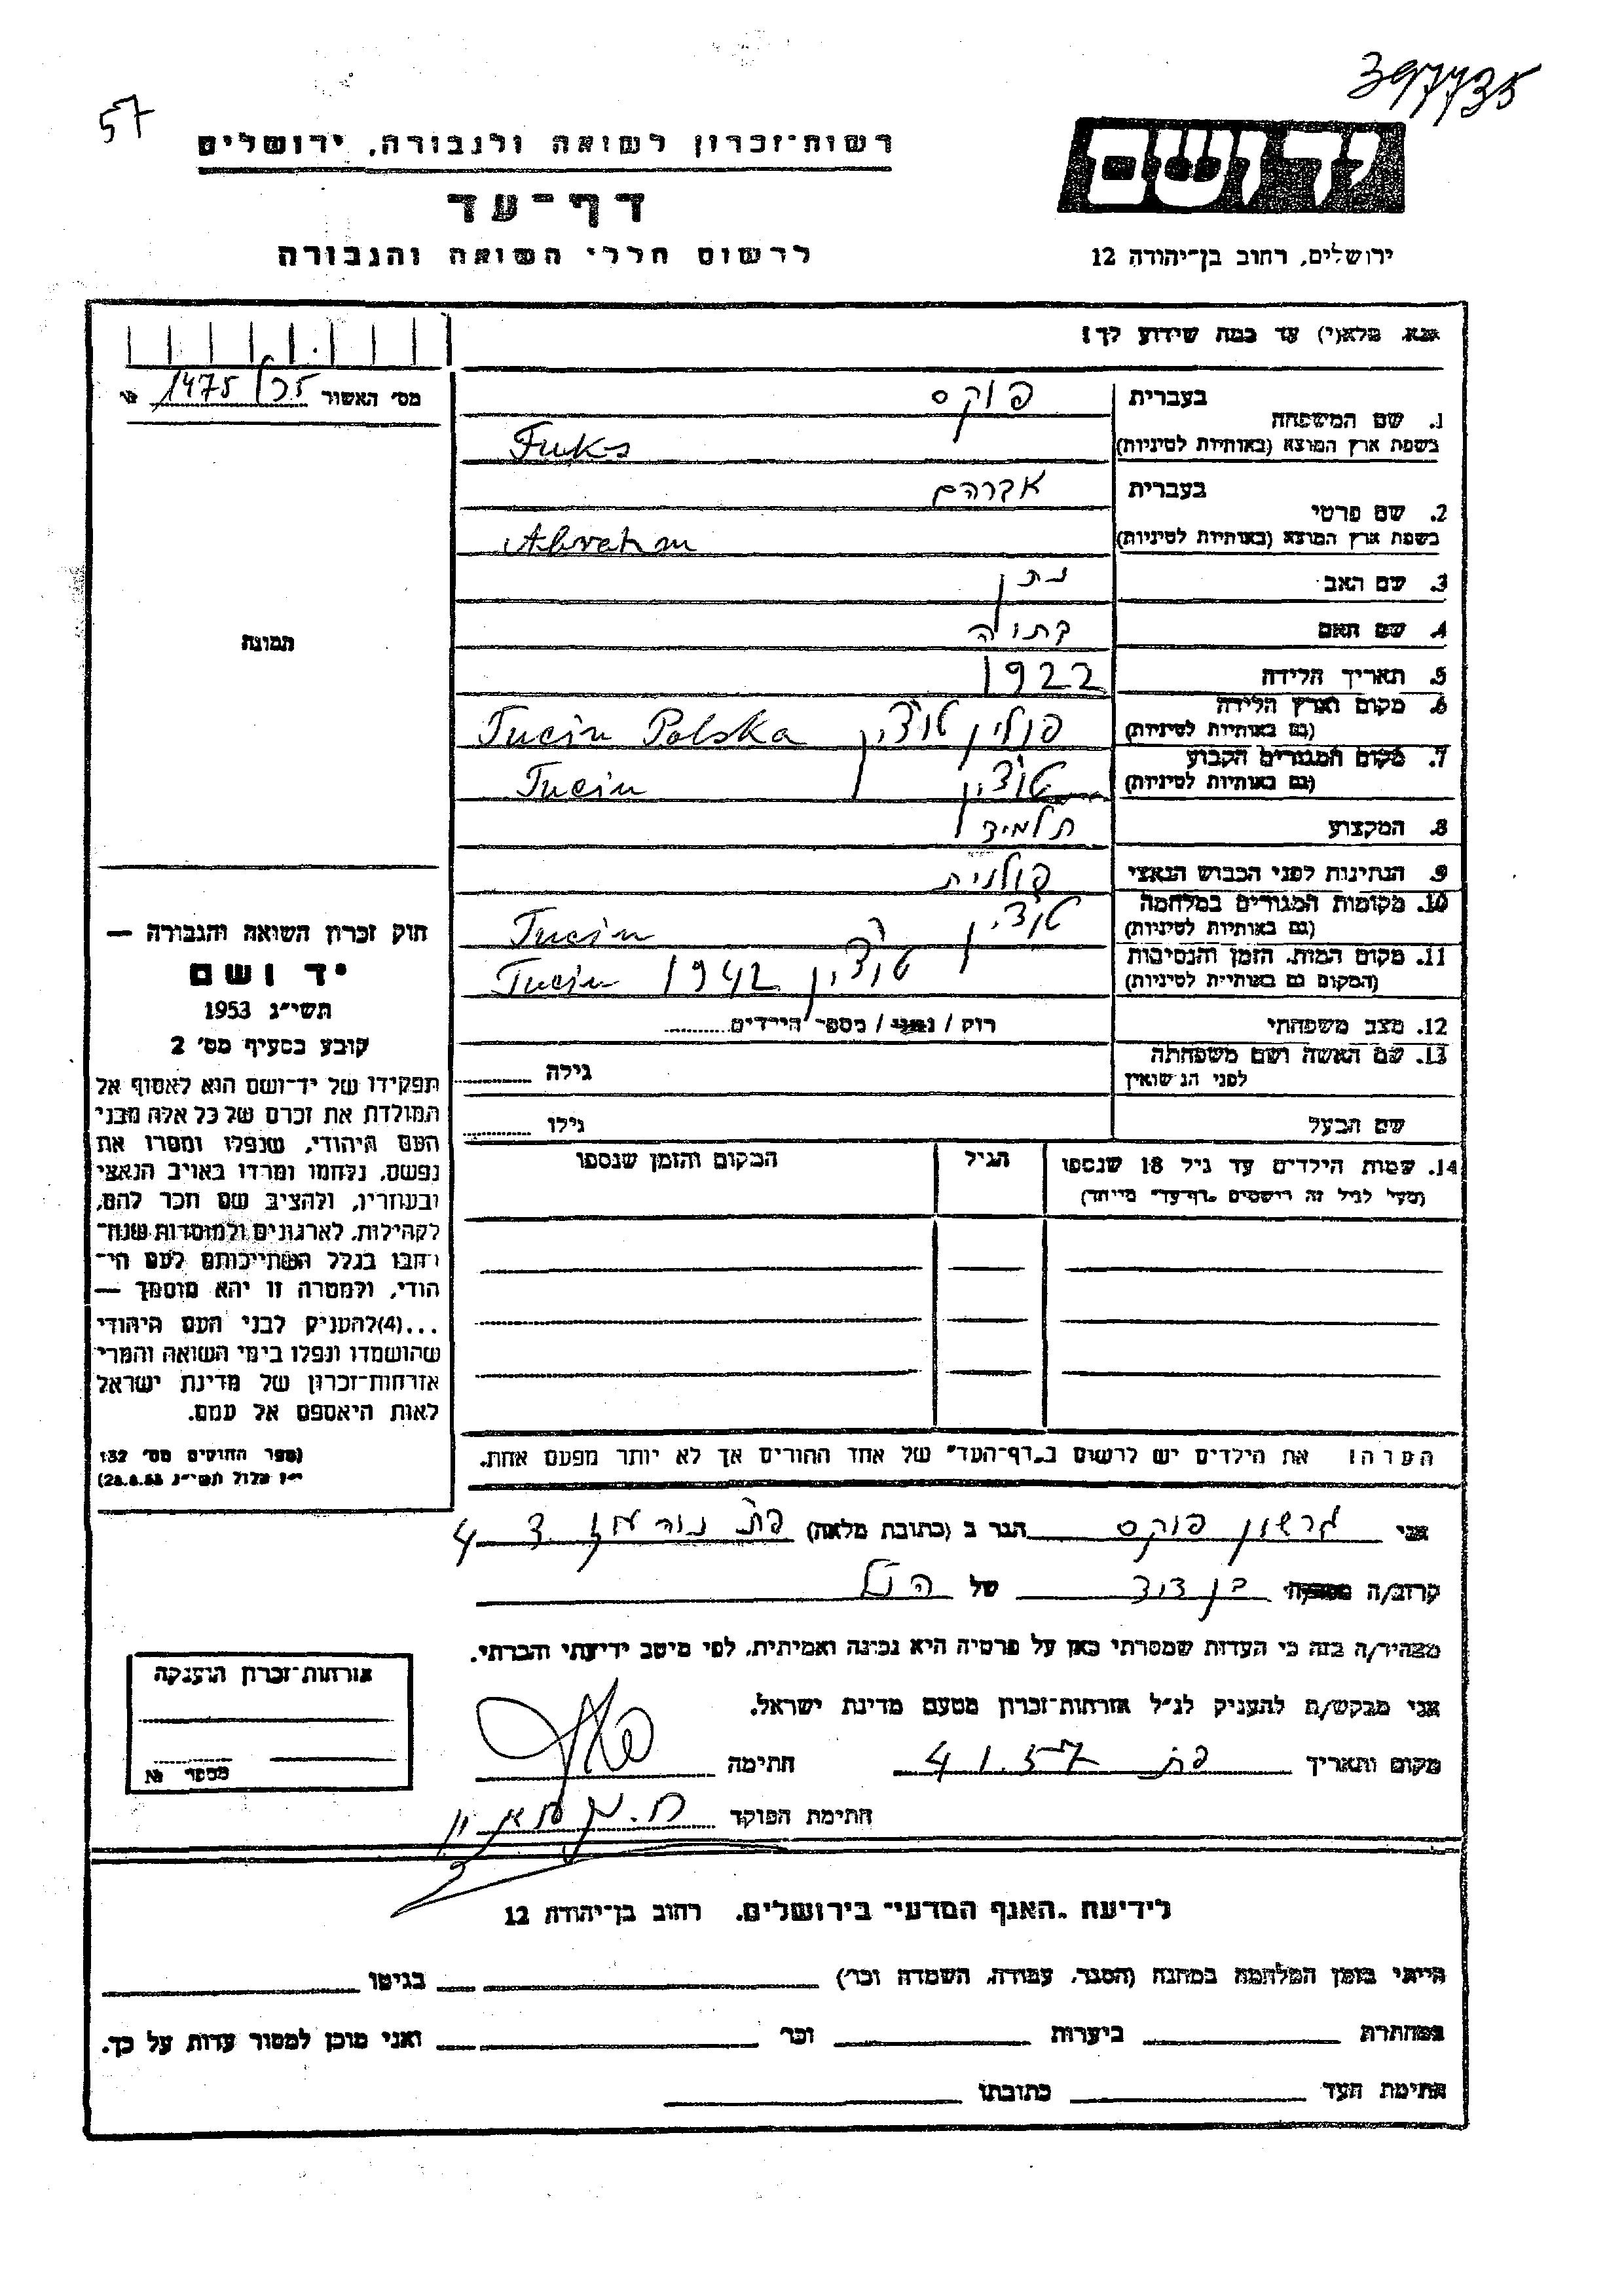 397735
57
רשות־זכרון לשואה ולגבורה, ירושלים
יד ושם
דף־עד
לרשום חללי השואה והגבורה
ירושלים, רחוב בן־יהודה 12
אנא, מלא(י) עד כמה שידוע לך!
מס׳ האשור 1475
1. שם המשפחה בעברית פוקס
בשפת ארץ המוצא (באותיות לטיניות) Fuks
2. שם פרטי בעברית אברהם
בשפת ארץ המוצא (באותיות לטיניות) Abraham
3. שם האב נתן
4. שם האם בתולה
5. תאריך הלידה 1922
6. מקום וארץ הלידה (גם באותיות לטיניות) פולין טוצ׳ין Tucin Polska
7. מקום המגורים הקבוע (גם באותיות לטיניות) טוצ׳ין Tucin
8. המקצוע תלמיד
9. הנתינות לפני הכבוש הנאצי פולנית
10. מקומות המגורים במלחמה (גם באותיות לטיניות) טוצ׳ין Tucin
11. מקום המות, הזמן והנסיבות (המקום גם באותיות לטיניות) טוצ׳ין 1942 Tucin
12. מצב משפחתי רוק / נשוי / מספר הילדים
13. שם האשה ושם משפחתה לפני הנשואין גילה
שם הבעל גילו
14. שמות הילדים עד גיל 18 שנספו הגיל המקום והזמן שנספו
(מעל לגיל זה רושמים „דף־עד״ מיוחד)
הערה: את הילדים יש לרשום ב„דף־העד״ של אחד ההורים אך לא יותר מפעם אחת.
תמונה
חוק זכרון השואה והגבורה —
יד ושם
תשי״ג 1953
קובע בסעיף מס׳ 2
תפקידו של יד־ושם הוא לאסוף אל
המולדת את זכרם של כל אלה מבני
העם היהודי, שנפלו ומסרו את
נפשם, נלחמו ומרדו באויב הנאצי
ובעוזריו, ולהציב שם וזכר להם,
לקהילות, לארגונים ולמוסדות שנח־
רבו בגלל השתייכותם לעם הי־
הודי, ולמטרה זו יהא מוסמך —
...(4)להעניק לבני העם היהודי
שהושמדו ונפלו בימי השואה והמרי
אזרחות־זכרון של מדינת ישראל
לאות היאספם אל עמם.
(ספר החוקים מס׳ 132
י״ז אלול תשי״ג 28.8.53)
אני גרשון פוקס הגר ב (כתובת מלאה) 4
קרוב/ה בן דוד של הנ״ל
מצהיר/ה בזה כי העדות שמסרתי כאן על פרטיה היא נכונה ואמיתית, לפי מיטב ידיעתי והכרתי.
אני מבקש/ת להעניק לנ״ל אזרחות־זכרון מטעם מדינת ישראל.
מקום ותאריך 4.1.57 חתימה
חתימת הפוקד
אזרחות־זכרון הוענקה
מספר №
לידיעת „האגף המדעי״ בירושלים, רחוב בן־יהודה 12
הייתי בזמן המלחמה במחנה (הסגר, עבודה, השמדה וכר׳) בגיטו
במחתרת ביערות וכר׳ ואני מוכן למסור עדות על כך.
חתימת העד כתובתו